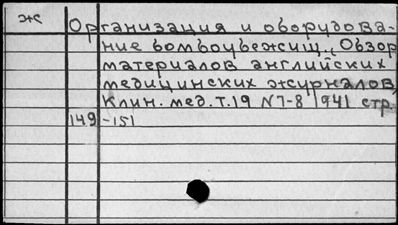 ж
Организация и оборудова-
ние бомбоубежищ. "Обзор
материалов английских
медицинских журналов,
Клин. мед. т. 19 N 7-8 1941 стр.
149-151